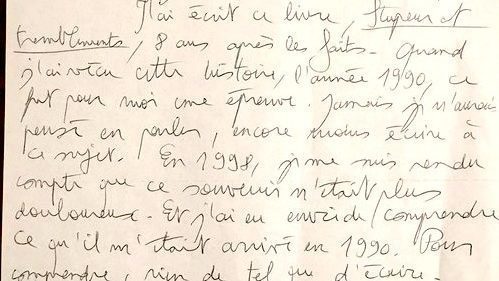 J'ai écrit ce livre, Stupeur et
tremblements, 8 ans après les faits. Quand
j'ai vécu cette histoire, l'année 1990, ce
fut pour moi une épreuve. Jamais je n'aurais
pensé en parler, encore moins écrire à
ce sujet. En 1998, je me suis rendu
compte que ce souvenir n'était plus
douloureux. Et j'ai eu envie de comprendre
ce qu'il m'était arrivé en 1990. Pour
comprendre, rien de tel que d'écrire.